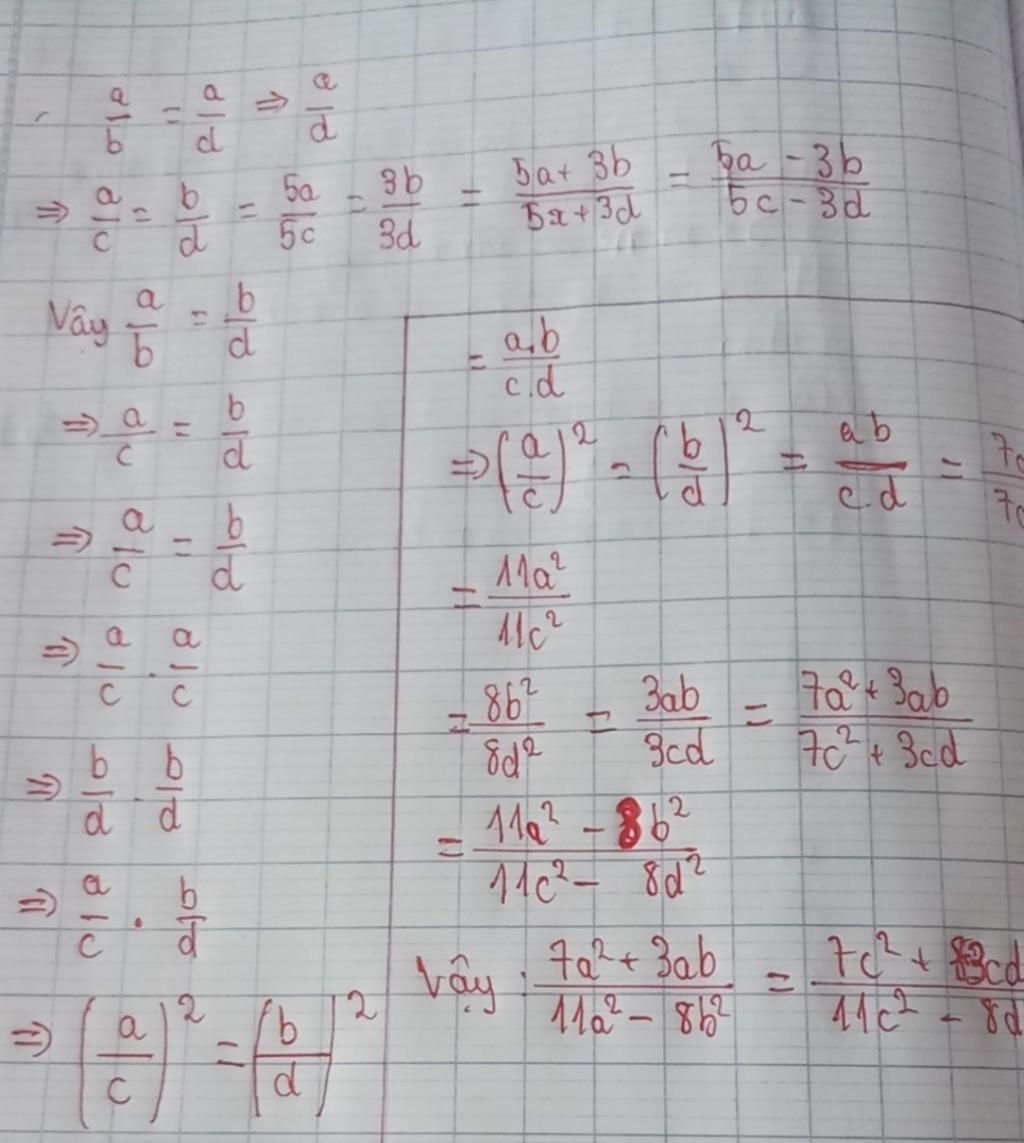 a/b = a/d ⇒ a/d
⇒ a/c = b/d = 5a/5c = 3b/3d = (5a + 3b)/(5x + 3d) = (5a - 3b)/(5c - 3d)
Vây a/b = b/d
⇒ a/c = b/d
⇒ a/c = b/d
⇒ a/c . a/c
⇒ b/d . b/d
⇒ a/c . b/d
⇒ (a/c)² = (b/d)²
= a.b/c.d
⇒ (a/c)² = (b/d)² = ab/c.d =
= 11a²/11c²
= 8b²/8d² = 3ab/3cd = (7a² + 3ab)/(7c² + 3cd)
= (11a² - 8b²)/(11c² - 8d²)
Vậy : (7a² + 3ab)/(11a² - 8b²) = (7c² + 3cd)/(11c² - 8d